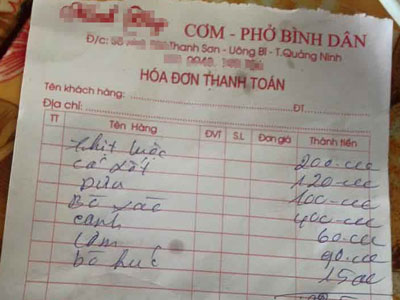 CƠM - PHỞ BÌNH DÂN
Đ/c: Số Thanh Sơn - Uông Bí - T.Quảng Ninh
HÓA ĐƠN THANH TOÁN
Tên khách hàng: ĐT
Địa chỉ:
TT Tên Hàng ĐVT S.L Đơn giá Thành tiền
thịt luộc 200.000
120.000
dưa 100.000
Bò xào 400.000
canh 60.000
cơm 90.000
bò húc 15.000